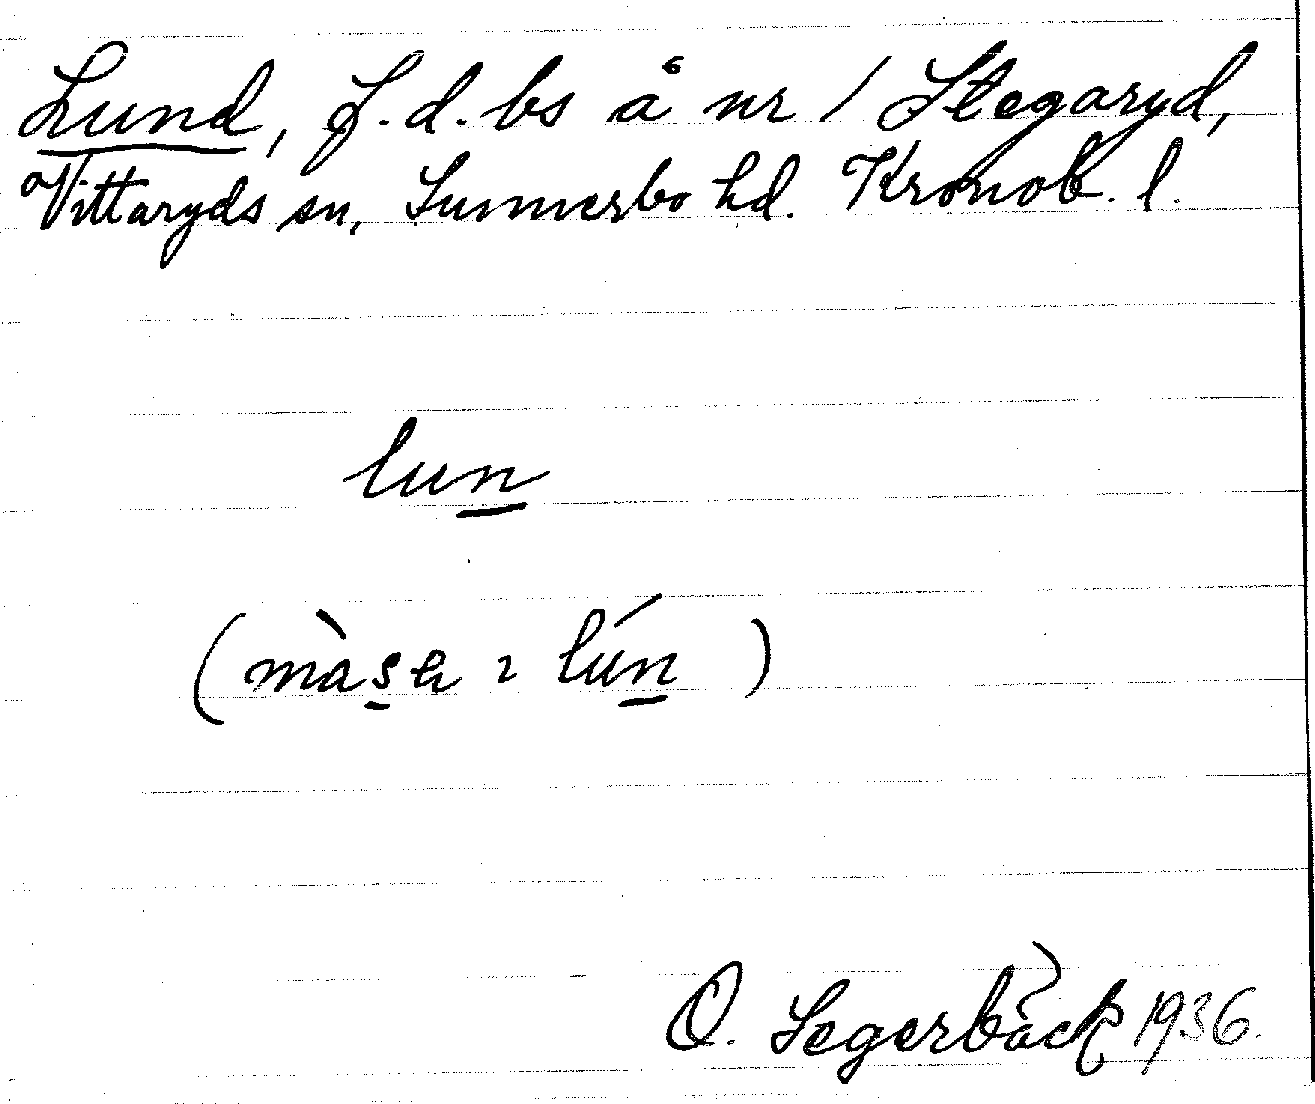 Lund, f.d. bs å nr 1 Stegaryd,
Vittaryds sn, Sunnerbo hd. Kronob. l.
lun
(màsa ı lún)
O. Segerbäck 1936.